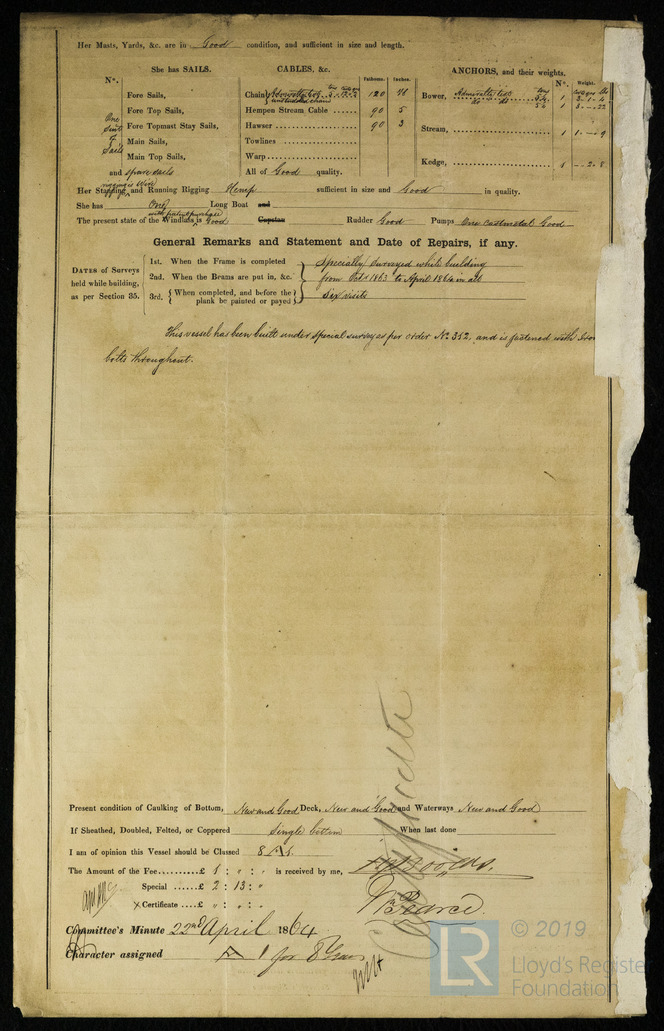 Her Masts, Yards, &c. are in Good condition, and sufficient in size and length.
She has SAILS.
CABLES, &c.
ANCHORS, and their weights.
Nº.
Fathoms. Inches.
Nº. Weight.
One Suit of Sails
Fore Sails,
Fore Top Sails,
Fore Topmast Stay Sails,
Main Sails,
Main Top Sails,
and spare sails
Chain 120
Hempen Stream Cable 90 5
Hawser 90 3
Towlines
Warp
All of Good quality.
Bower, 1 3 - 1 - 4
1 3 - - 22
Stream, 1 1 - - 9
Kedge, 1 - 2 - 8
Her Standing and Running Rigging Hemp sufficient in size and Good in quality.
She has One Long Boat and
with patent purchase
The present state of the Windlass is Good Capstan Rudder Good Pumps One castmetal Good
General Remarks and Statement and Date of Repairs, if any.
DATES of Surveys held while building, as per Section 35.
1st. When the Frame is completed
2nd. When the Beams are put in, &c.
3rd. When completed, and before the plank be painted or payed
Specially surveyed while building
from Oct 1863 to April 1864 in all
Six visits
This vessel has been built under special survey as per order No 352, and is fastened with Iron
bolts throughout.
Present condition of Caulking of Bottom, New and Good Deck, New and Good and Waterways New and Good
If Sheathed, Doubled, Felted, or Coppered Single bottom When last done
I am of opinion this Vessel should be Classed 8 A 1.
The Amount of the Fee £ 1 : " : " is received by me,
Special £ 2 : 13 : "
Certificate £ " : " : "
Pearce
Committee's Minute 22nd April 1864
Character assigned A 1 for 8 Years
LR
© 2019
Lloyd's Register
Foundation